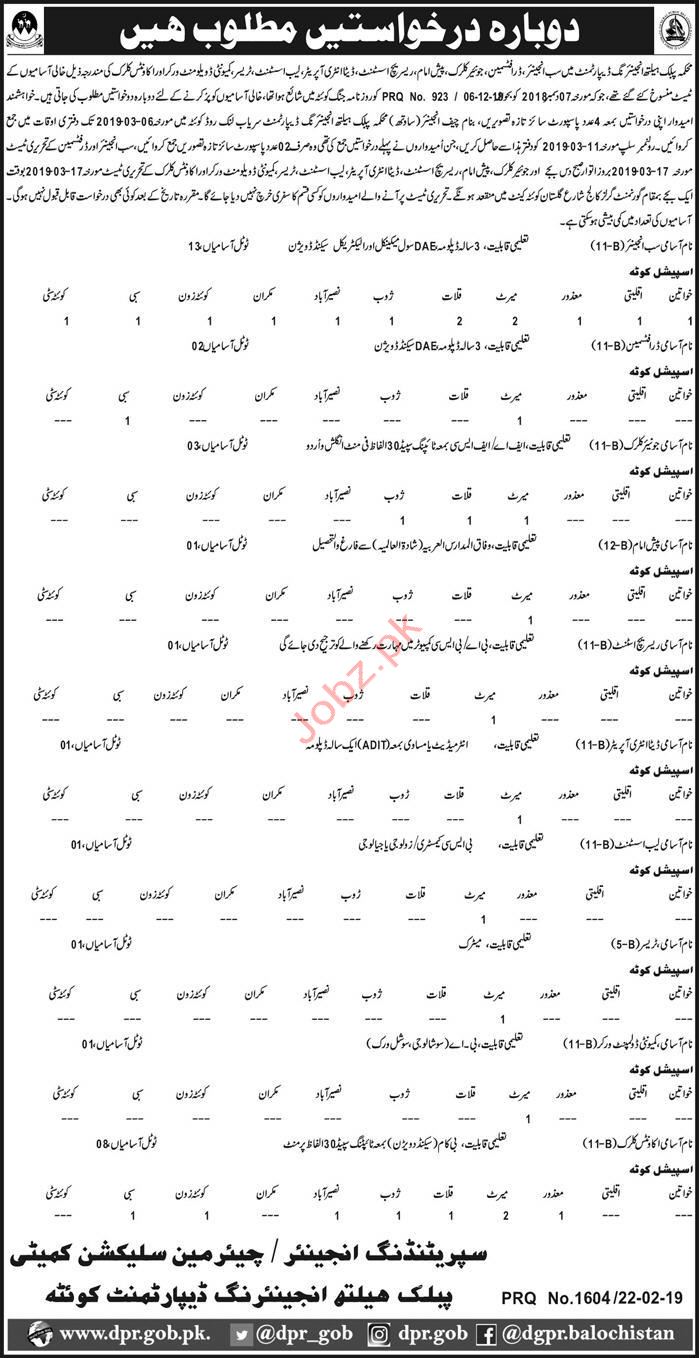 دوبارہ درخواستیں مطلوب ہیں
محکمہ پبلک ہیلتھ انجینئرنگ ڈیپارٹمنٹ میں سب انجینئر، ڈرافٹسمین، جونیئر کلرک، پیش امام، ریسرچ اسسٹنٹ، ڈیٹا انٹری آپریٹر، لیب اسسٹنٹ، ٹریسر، کمیونٹی ڈویلومنٹ ورکر اور اکاؤنٹس کلرک کی مندرجہ ذیل خالی آسامیوں کے
ٹیسٹ منسوخ کئے گئے تھے، جو کہ مورخہ 07 دسمبر 2018 کو بحوالہ PRQ No. 923 / 06-12-18 کو روزنامہ جنگ کوئٹہ میں شائع ہوا تھا، خالی آسامیوں کو پُر کرنے کے لئے دوبارہ درخواستیں مطلوب کی جاتی ہیں۔ خواہشمند
امیدوار اپنی درخواستیں بمعہ 4 عدد پاسپورٹ سائز تازہ تصویریں، بنام چیف انجینئر (ساؤتھ) محکمہ پبلک ہیلتھ انجینئرنگ ڈیپارٹمنٹ سریاب لنک روڈ کوئٹہ میں مورخہ 06-03-2019 تک دفتری اوقات میں جمع
کروائیں۔ رولنمبر سلپ مورخہ 11-03-2019 کو دفتر ہذا سے حاصل کریں، جن اُمیدواروں نے پہلے درخواستیں جمع کی تھی وہ صرف 02 عدد پاسپورٹ سائز تازہ تصویریں جمع کروائیں، سب انجینئر اور ڈرافٹسمین کے تحریری ٹیسٹ
مورخہ 17-03-2019 بروز اتوار صبح دس بجے اور جونیئر کلرک، پیش امام، ریسرچ اسسٹنٹ، ڈیٹا انٹری آپریٹر، لیب اسسٹنٹ، ٹریسر، کمیونٹی ڈویلومنٹ ورکر اور اکاؤنٹس کلرک کے تحریری ٹیسٹ مورخہ 17-03-2019 بوقت
ایک بجے بمقام گورنمنٹ گرلز کالج شارع گلستان کوئٹہ کینٹ میں منعقد ہونگے۔ تحریری ٹیسٹ پر آنے والے امیدواروں کو کسی قسم کا سفری خرچ نہیں دیا جائے گا۔ مقررہ تاریخ کے بعد کوئی بھی درخواست قابل قبول نہیں ہوگی۔
آسامیوں کی تعداد میں کمی بیشی ہو سکتی ہے۔
نام آسامی سب انجینئر (B-11) تعلیمی قابلیت، 3 سالہ ڈپلومہ، DAE سول میکینکل اور الیکٹریکل سیکنڈ ڈویژن ٹوٹل آسامیاں، 13
اسپیشل کوٹہ
خواتین اقلیتی معذور میرٹ قلات ژوب نصیرآباد مکران کوئٹہ زون سبی کوئٹہ سٹی
1 1 1 2 2 1 1 1 1 1 1
نام آسامی ڈرافٹسمین (B-11) تعلیمی قابلیت، 3 سالہ ڈپلومہ، DAE سیکنڈ ڈویژن ٹوٹل آسامیاں، 02
اسپیشل کوٹہ
خواتین اقلیتی معذور میرٹ قلات ژوب نصیرآباد مکران کوئٹہ زون سبی کوئٹہ سٹی
--- --- --- 1 --- --- --- --- --- 1 ---
نام آسامی جونیئر کلرک (B-11) تعلیمی قابلیت، ایف اے/ ایف ایس سی بمعہ ٹائپنگ سپیڈ 30 الفاظ فی منٹ انگلش و اُردو ٹوٹل آسامیاں، 03
اسپیشل کوٹہ
خواتین اقلیتی معذور میرٹ قلات ژوب نصیرآباد مکران کوئٹہ زون سبی کوئٹہ سٹی
--- --- --- 1 1 1 --- --- --- --- ---
نام آسامی پیش امام (B-12) تعلیمی قابلیت، وفاق المدارس العربیہ (شادۃ العالمیہ) سے فارغ والتحصیل ٹوٹل آسامیاں، 01
اسپیشل کوٹہ
خواتین اقلیتی معذور میرٹ قلات ژوب نصیرآباد مکران کوئٹہ زون سبی کوئٹہ سٹی
--- --- --- 1 --- --- --- --- --- --- ---
نام آسامی ریسرچ اسٹنٹ (B-11) تعلیمی قابلیت، بی اے/ بی ایس سی کمپیوٹر میں مہارت رکھنے والے کو ترجیح دی جائے گی ٹوٹل آسامیاں، 01
اسپیشل کوٹہ
خواتین اقلیتی معذور میرٹ قلات ژوب نصیرآباد مکران کوئٹہ زون سبی کوئٹہ سٹی
--- --- --- 1 --- --- --- --- --- --- ---
نام آسامی ڈیٹا انٹری آپریٹر (B-11) تعلیمی قابلیت، انٹرمیڈیٹ یا مساوی بمعہ (ADIT) ایک سالہ ڈپلومہ ٹوٹل آسامیاں، 01
اسپیشل کوٹہ
خواتین اقلیتی معذور میرٹ قلات ژوب نصیرآباد مکران کوئٹہ زون سبی کوئٹہ سٹی
--- --- --- 1 --- --- --- --- --- --- ---
نام آسامی لیب اسسٹنٹ (B-11) تعلیمی قابلیت، بی ایس سی کیمسٹری/ زولوجی یا جیالوجی ٹوٹل آسامیاں، 01
اسپیشل کوٹہ
خواتین اقلیتی معذور میرٹ قلات ژوب نصیرآباد مکران کوئٹہ زون سبی کوئٹہ سٹی
--- --- --- 1 --- --- --- --- --- --- ---
نام آسامی، ٹریسر (B-5) تعلیمی قابلیت، میٹرک ٹوٹل آسامیاں، 01
اسپیشل کوٹہ
خواتین اقلیتی معذور میرٹ قلات ژوب نصیرآباد مکران کوئٹہ زون سبی کوئٹہ سٹی
--- --- --- 1 --- --- --- --- --- --- ---
نام آسامی، کمیونٹی ڈولمپنٹ ورکر (B-11) تعلیمی قابلیت، بی۔اے (سوشالوجی، سوشل ورک) ٹوٹل آسامیاں، 01
اسپیشل کوٹہ
خواتین اقلیتی معذور میرٹ قلات ژوب نصیرآباد مکران کوئٹہ زون سبی کوئٹہ سٹی
--- --- --- 1 --- --- --- --- --- --- ---
نام آسامی اکاؤنٹس کلرک (B-11) تعلیمی قابلیت، بی کام (سیکنڈ ڈویژن) بمعہ ٹائپنگ سپیڈ 30 الفاظ پر منٹ ٹوٹل آسامیاں، 08
اسپیشل کوٹہ
خواتین اقلیتی معذور میرٹ قلات ژوب نصیرآباد مکران کوئٹہ زون سبی کوئٹہ سٹی
--- --- 1 2 1 1 1 --- 1 1 ---
سپریٹنڈنگ انجینئر / چیئرمین سلیکشن کمیٹی
پبلک ھیلتھ انجینئرنگ ڈیپارٹمنٹ کوئٹہ
PRQ No.1604/22-02-19
www.dpr.gob.pk. @dpr_gob dpr.gob @dgpr.balochistan
Jobz.pk